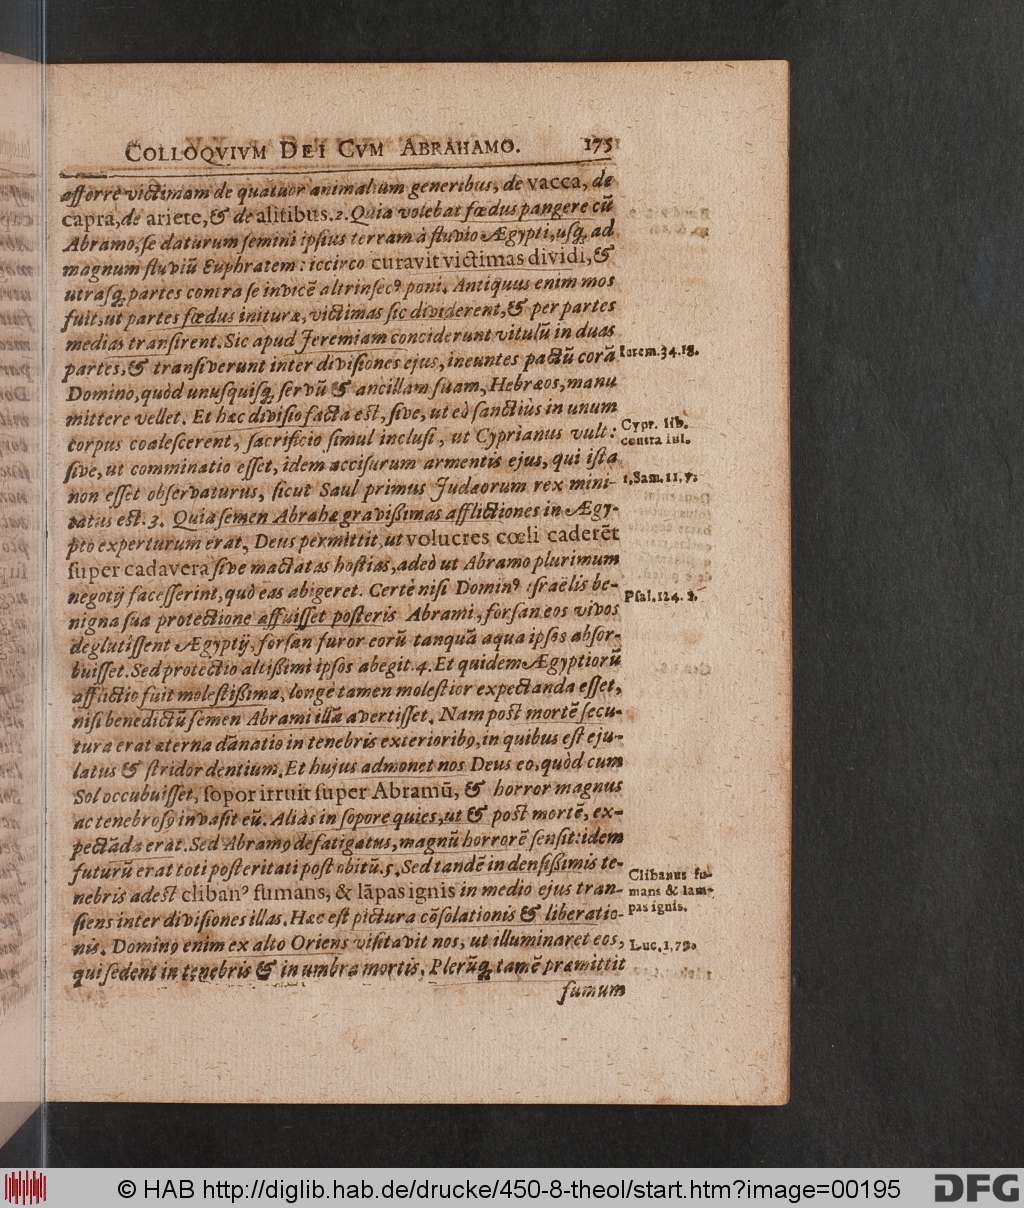 COLLOQVIVM DEI CVM ABRAHAMO. 175
afferre victimam de quatuor animalium generibus, de vacca, de
capra, de ariete, & de alitibus. 2. Quia volebat fœdus pangere cū
Abramo, ſe daturum ſemini ipſius terram à fluvio Ægypti, uſq; ad
magnum fluviū Euphratem: iccirco curavit victimas dividi, &
utraſq; partes contra ſe invicē altrinſecꝰ poni. Antiquus enim mos
fuit, ut partes fœdus inituræ, victimas ſic dividerent, & per partes
medias tranſirent. Sic apud Jeremiam conciderunt vitulū in duas
partes, & tranſiverunt inter diviſiones ejus, ineuntes pactū corā
Domino, quòd unuſquiſq; ſervū & ancillam ſuam, Hebræos, manu
mittere vellet. Et hæc diviſio facta eſt, ſive, ut eò ſanctiùs in unum
corpus coaleſcerent, ſacrificio ſimul incluſi, ut Cyprianus vult:
ſive, ut comminatio eſſet, idem acciſurum armentis ejus, qui iſta
non eſſet obſervaturus, ſicut Saul primus Judæorum rex mini-
tatus eſt. 3. Quia ſemen Abrahæ graviſſimas afflictiones in Ægy-
pto experturum erat, Deus permittit, ut volucres cœli caderēt
ſuper cadavera ſive mactatas hoſtias, adeò ut Abramo plurimum
negotij faceſſerint, quò eas abigeret. Certè niſi Dominꝰ Iſraëlis be-
nigna ſua protectione affuiſſet poſteris Abrami, forſan eos vivos
deglutiſſent Ægyptij, forſan furor eorū tanquā aqua ipſos abſor-
buiſſet. Sed protectio altiſſimi ipſos abegit. 4. Et quidem Ægyptiorū
afflictio fuit moleſtiſſima, longè tamen moleſtior expectanda eſſet,
niſi benedictū ſemen Abrami illā avertiſſet. Nam poſt mortē ſecu-
tura erat æterna dānatio in tenebris exterioribꝰ, in quibus eſt eju-
latus & ſtridor dentium. Et hujus admonet nos Deus eo, quòd cum
Sol occubuiſſet, ſopor irruit ſuper Abramū, & horror magnus
ac tenebroſꝰ invaſit eū. Aliàs in ſopore quies, ut & poſt mortē, ex-
pectāda erat. Sed Abramꝰ defatigatus, magnū horrorē ſenſit: idem
futurū erat toti poſteritati poſt obitū. 5. Sed tandē in denſiſſimis te-
nebris adeſt clibanꝰ fumans, & lāpas ignis in medio ejus tran-
ſiens inter diviſiones illas. Hæc eſt pictura cōſolationis & liberatio-
nis. Dominꝰ enim ex alto Oriens viſitavit nos, ut illuminaret eos,
qui ſedent in tenebris & in umbra mortis. Plerūq; tamē præmittit
fumum
Ierem. 34. 18.
Cypr. lib.
contra Iul.
1. Sam. 11, 7.
Pſal. 124. 2.
Clibanus fu-
mans & lam-
pas ignis.
Luc. 1, 79.
© HAB http://diglib.hab.de/drucke/450-8-theol/start.htm?image=00195
DFG